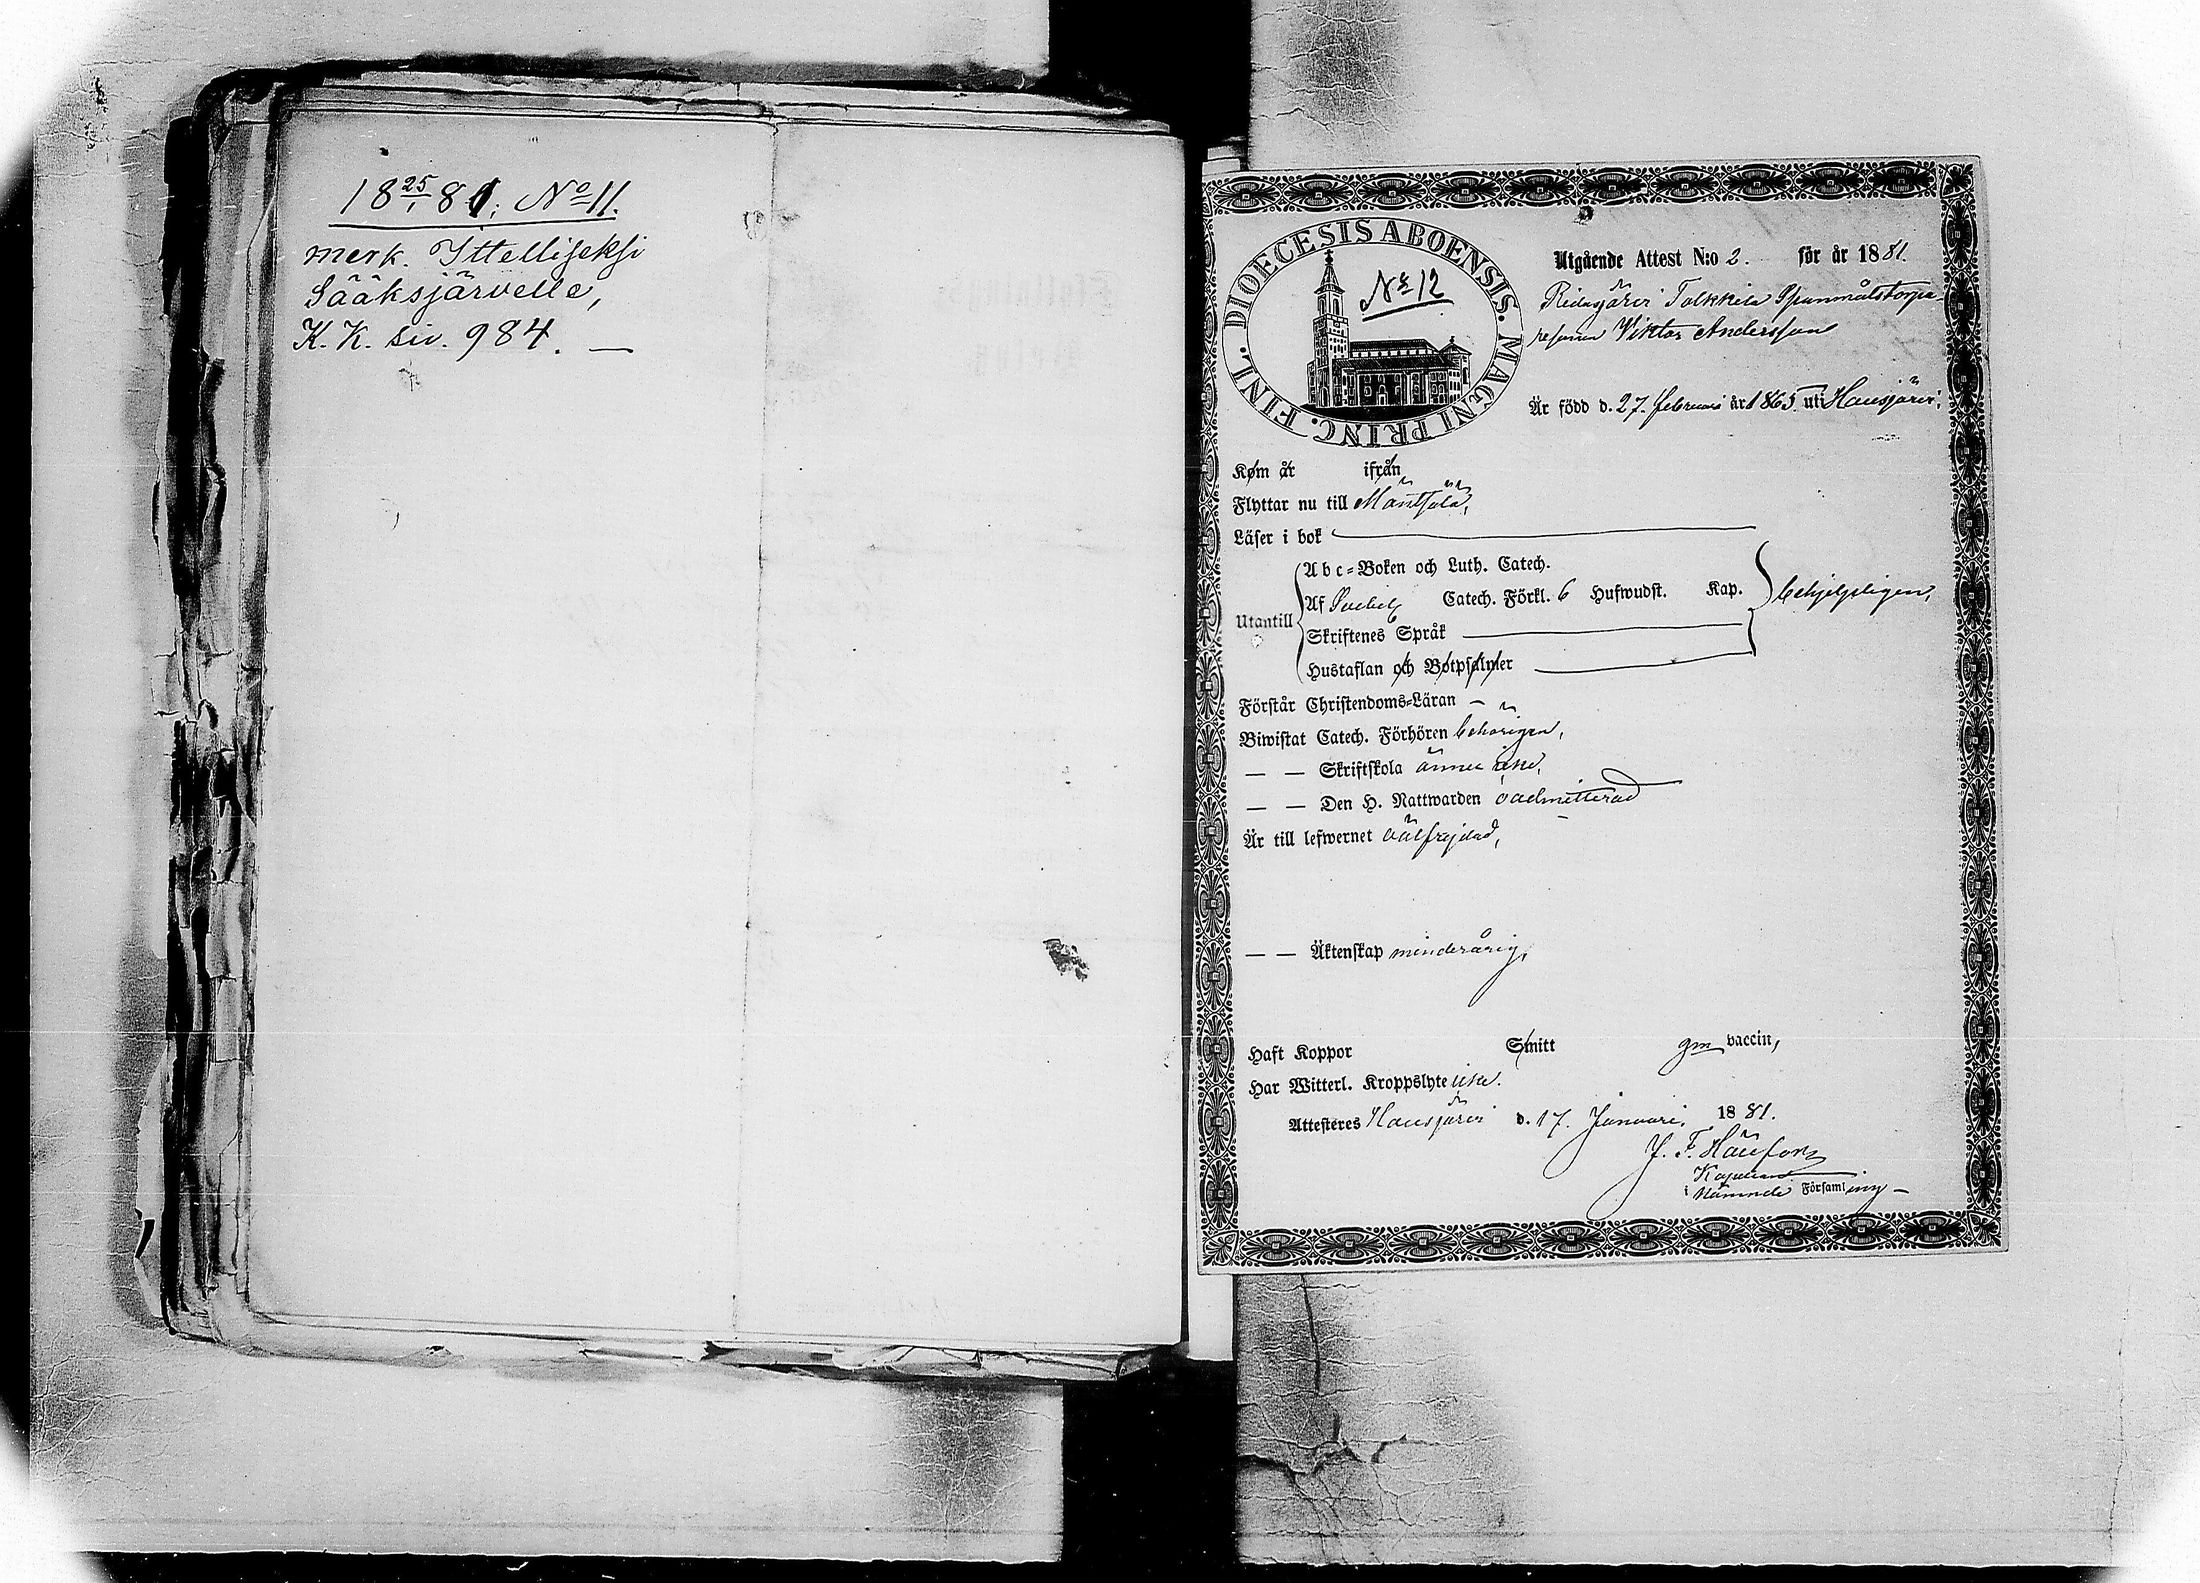 18 25/1 81; No 11.
merk. Ittelliseksi
Sääksjärvelle,
K. K. siv. 984. —
DIOECESIS ABOENSIS. MAGNI PRINC. FINL.
No 12
Utgående Attest N:o 2. för år 1881.
Ridasjärvi Torkkila Spanmålstorpa-
resonen Viktor Andersson
Är född d. 27. februari år 1865 uti Hausjärvi,
Kom år ifrån
Flyttar nu till Mäntsälä,
Läser i bok
Utantill
Abc=Boken och Luth. Catech.
Af Svebelg Catech. Förkl. 6 Hufwudst. Kap.
behjelpligen,
Skriftenes Språk
Hustaflan och Botpsalmer
Förstår Christendoms=Läran —
Biwistat Catech. Förhören behörigen,
— — Skriftskola ännu icke,
— — Den H. Nattwarden oadmitterad
Är till lefwernet välfrejdad,
— — Äktenskap minderårig,
Haft Koppor Smitt gm vaccin,
Har Witterl. Kroppslyte icke.
Attesteres Hausjärvi d. 17. Januari 1881.
J. F. Hällfors
Kapellan
i Nämnde Församling —